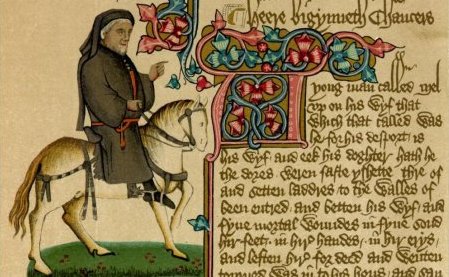 heere bigynneth Chaucers
A yong man called mel
up on his wyf that
Which that called was
for his desport is
his wyf and eek his doghter hath he
the dores weren faste yshette thre of
and setten laddres to the walles of
been entred and betten his wyf and
fyve mortal woundes in fyve sond
hir feet in hir handes in hir erys
and leften hir for deed and wenten
torned was in to his hous and